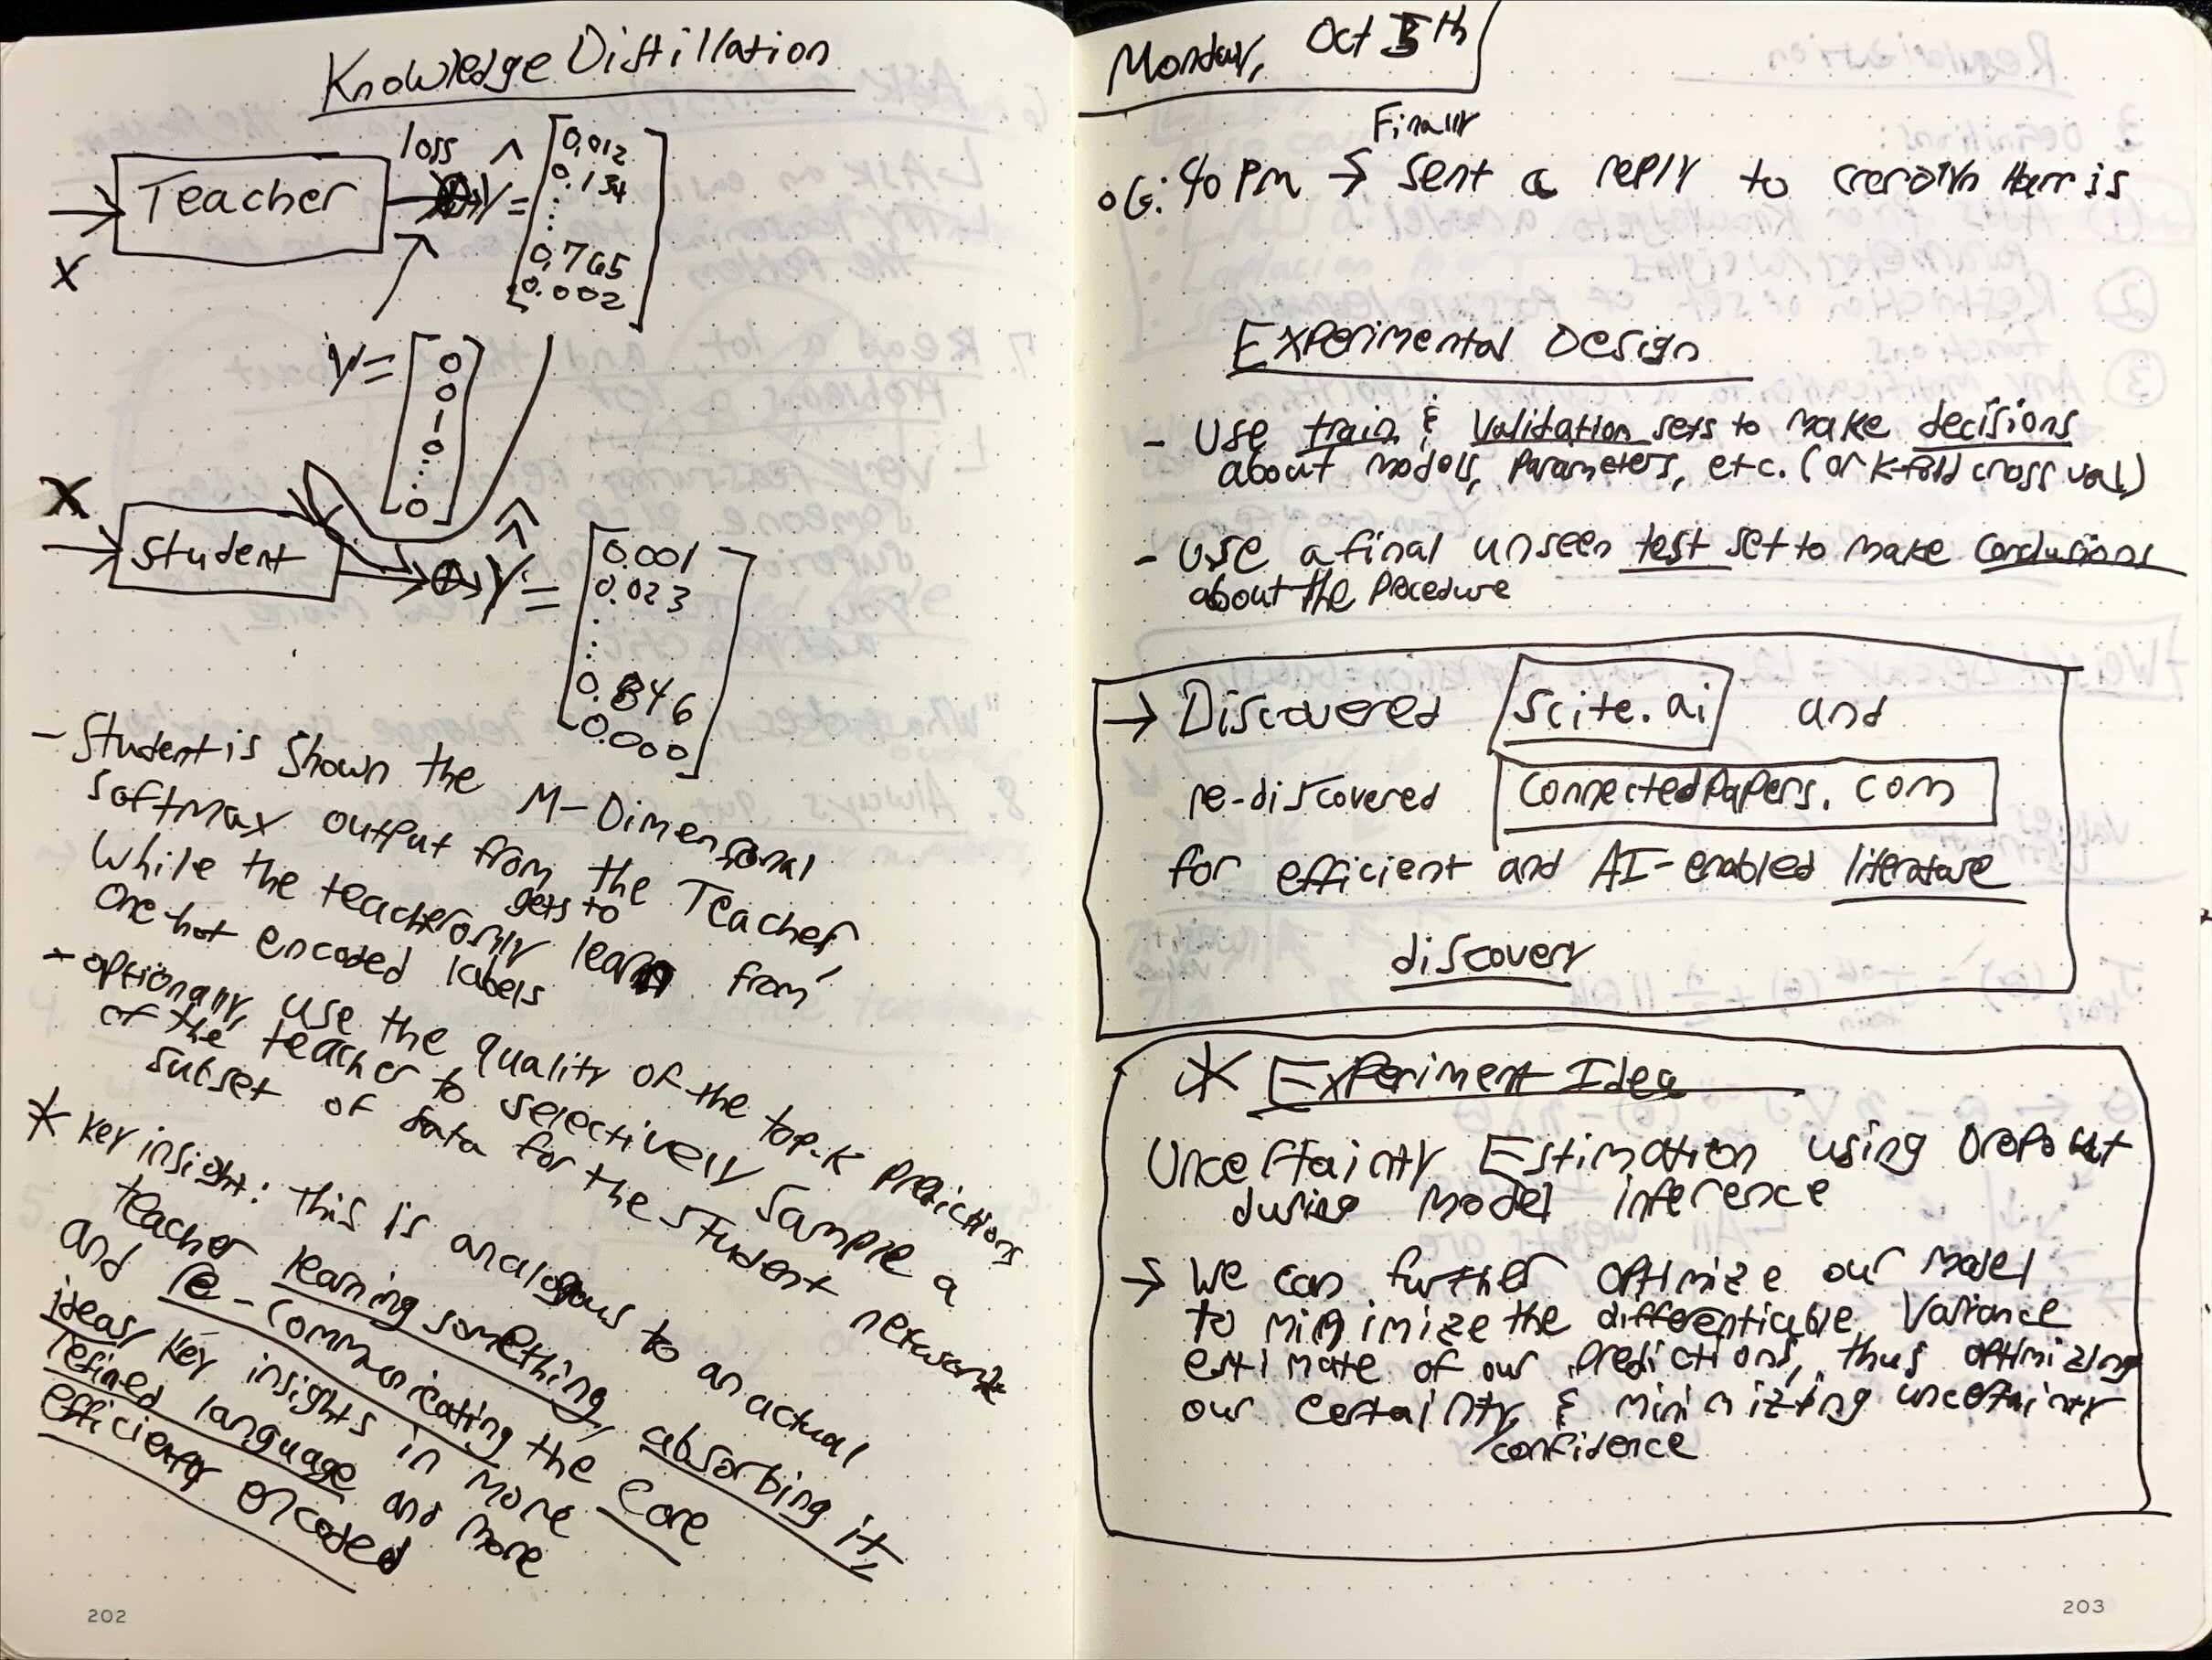 Knowledge Distillation
loss
Teacher
X
Ŷ = [0.012
0.134
⋮
0.765
0.002]
Y = [0
0
1
0
⋮
0]
X
Student
Ŷ = [0.001
0.023
⋮
0.846
0.000]
- Student is shown the M-Dimensional
softmax output from the Teacher,
while the teacher only gets to learn from
one-hot encoded labels
- optionally, use the quality of the top-k predictions
of the teacher to selectively sample a
subset of data for the student network
* key insight: this is analogous to an actual
teacher learning something, absorbing it,
and re-communicating the core
ideas/key insights in more
refined language and more
efficiently encoded
202
Monday, Oct 5th
Finally
6:40 PM → sent a reply to Harris
Experimental Design
- Use train & validation sets to make decisions
about models, parameters, etc. (or k-fold cross val)
- Use a final unseen test set to make conclusions
about the procedure
→ Discovered scite.ai and
re-discovered connectedpapers.com
for efficient and AI-enabled literature
discovery
* Experiment Idea
Uncertainty Estimation using Dropout
during model inference
→ We can further optimize our model
to minimize the differentiable variance
estimate of our predictions, thus optimizing
our certainty & minimizing uncertainty
/confidence
203